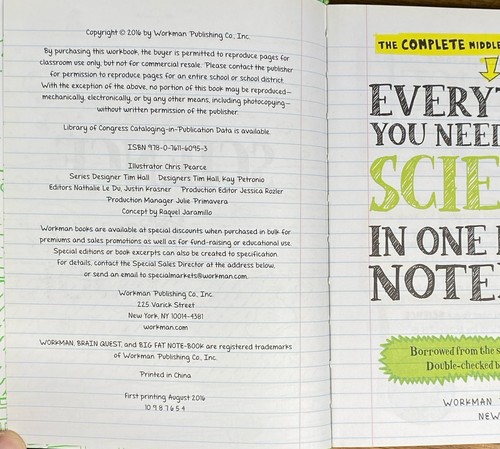 Copyright © 2016 by Workman Publishing Co., Inc.
By purchasing this workbook, the buyer is permitted to reproduce pages for
classroom use only, but not for commercial resale. Please contact the publisher
for permission to reproduce pages for an entire school or school district.
With the exception of the above, no portion of this book may be reproduced—
mechanically, electronically, or by any other means, including photocopying—
without written permission of the publisher.
Library of Congress Cataloging-in-Publication Data is available.
ISBN 978-0-7611-6095-3
Illustrator Chris Pearce
Series Designer Tim Hall Designers Tim Hall, Kay Petronio
Editors Nathalie Le Du, Justin Krasner Production Editor Jessica Rozler
Production Manager Julie Primavera
Concept by Raquel Jaramillo
Workman books are available at special discounts when purchased in bulk for
premiums and sales promotions as well as for fund-raising or educational use.
Special editions or book excerpts can also be created to specification.
For details, contact the Special Sales Director at the address below,
or send an email to specialmarkets@workman.com.
Workman Publishing Co., Inc.
225 Varick Street
New York, NY 10014-4381
workman.com
WORKMAN, BRAIN QUEST, and BIG FAT NOTEBOOK are registered trademarks
of Workman Publishing Co., Inc.
Printed in China
First printing August 2016
10 9 8 7 6 5 4
THE COMPLETE MIDDLE
EVERYT
YOU NEED
SCIE
IN ONE
NOTE
Borrowed from the s
Double-checked b
WORKMAN
NEW